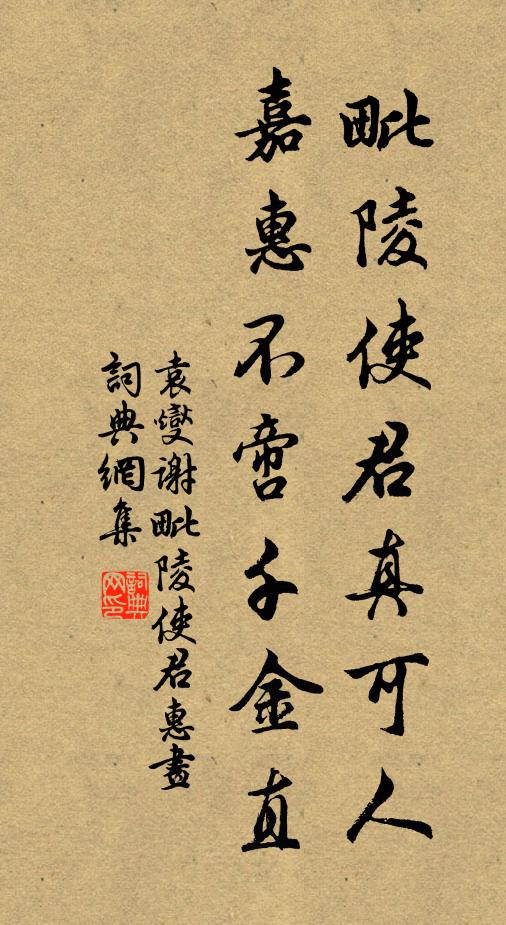 毗陵使君真可人
嘉惠不啻千金直
袁燮謝毗陵使君惠畫
詞典網集
詞典网印